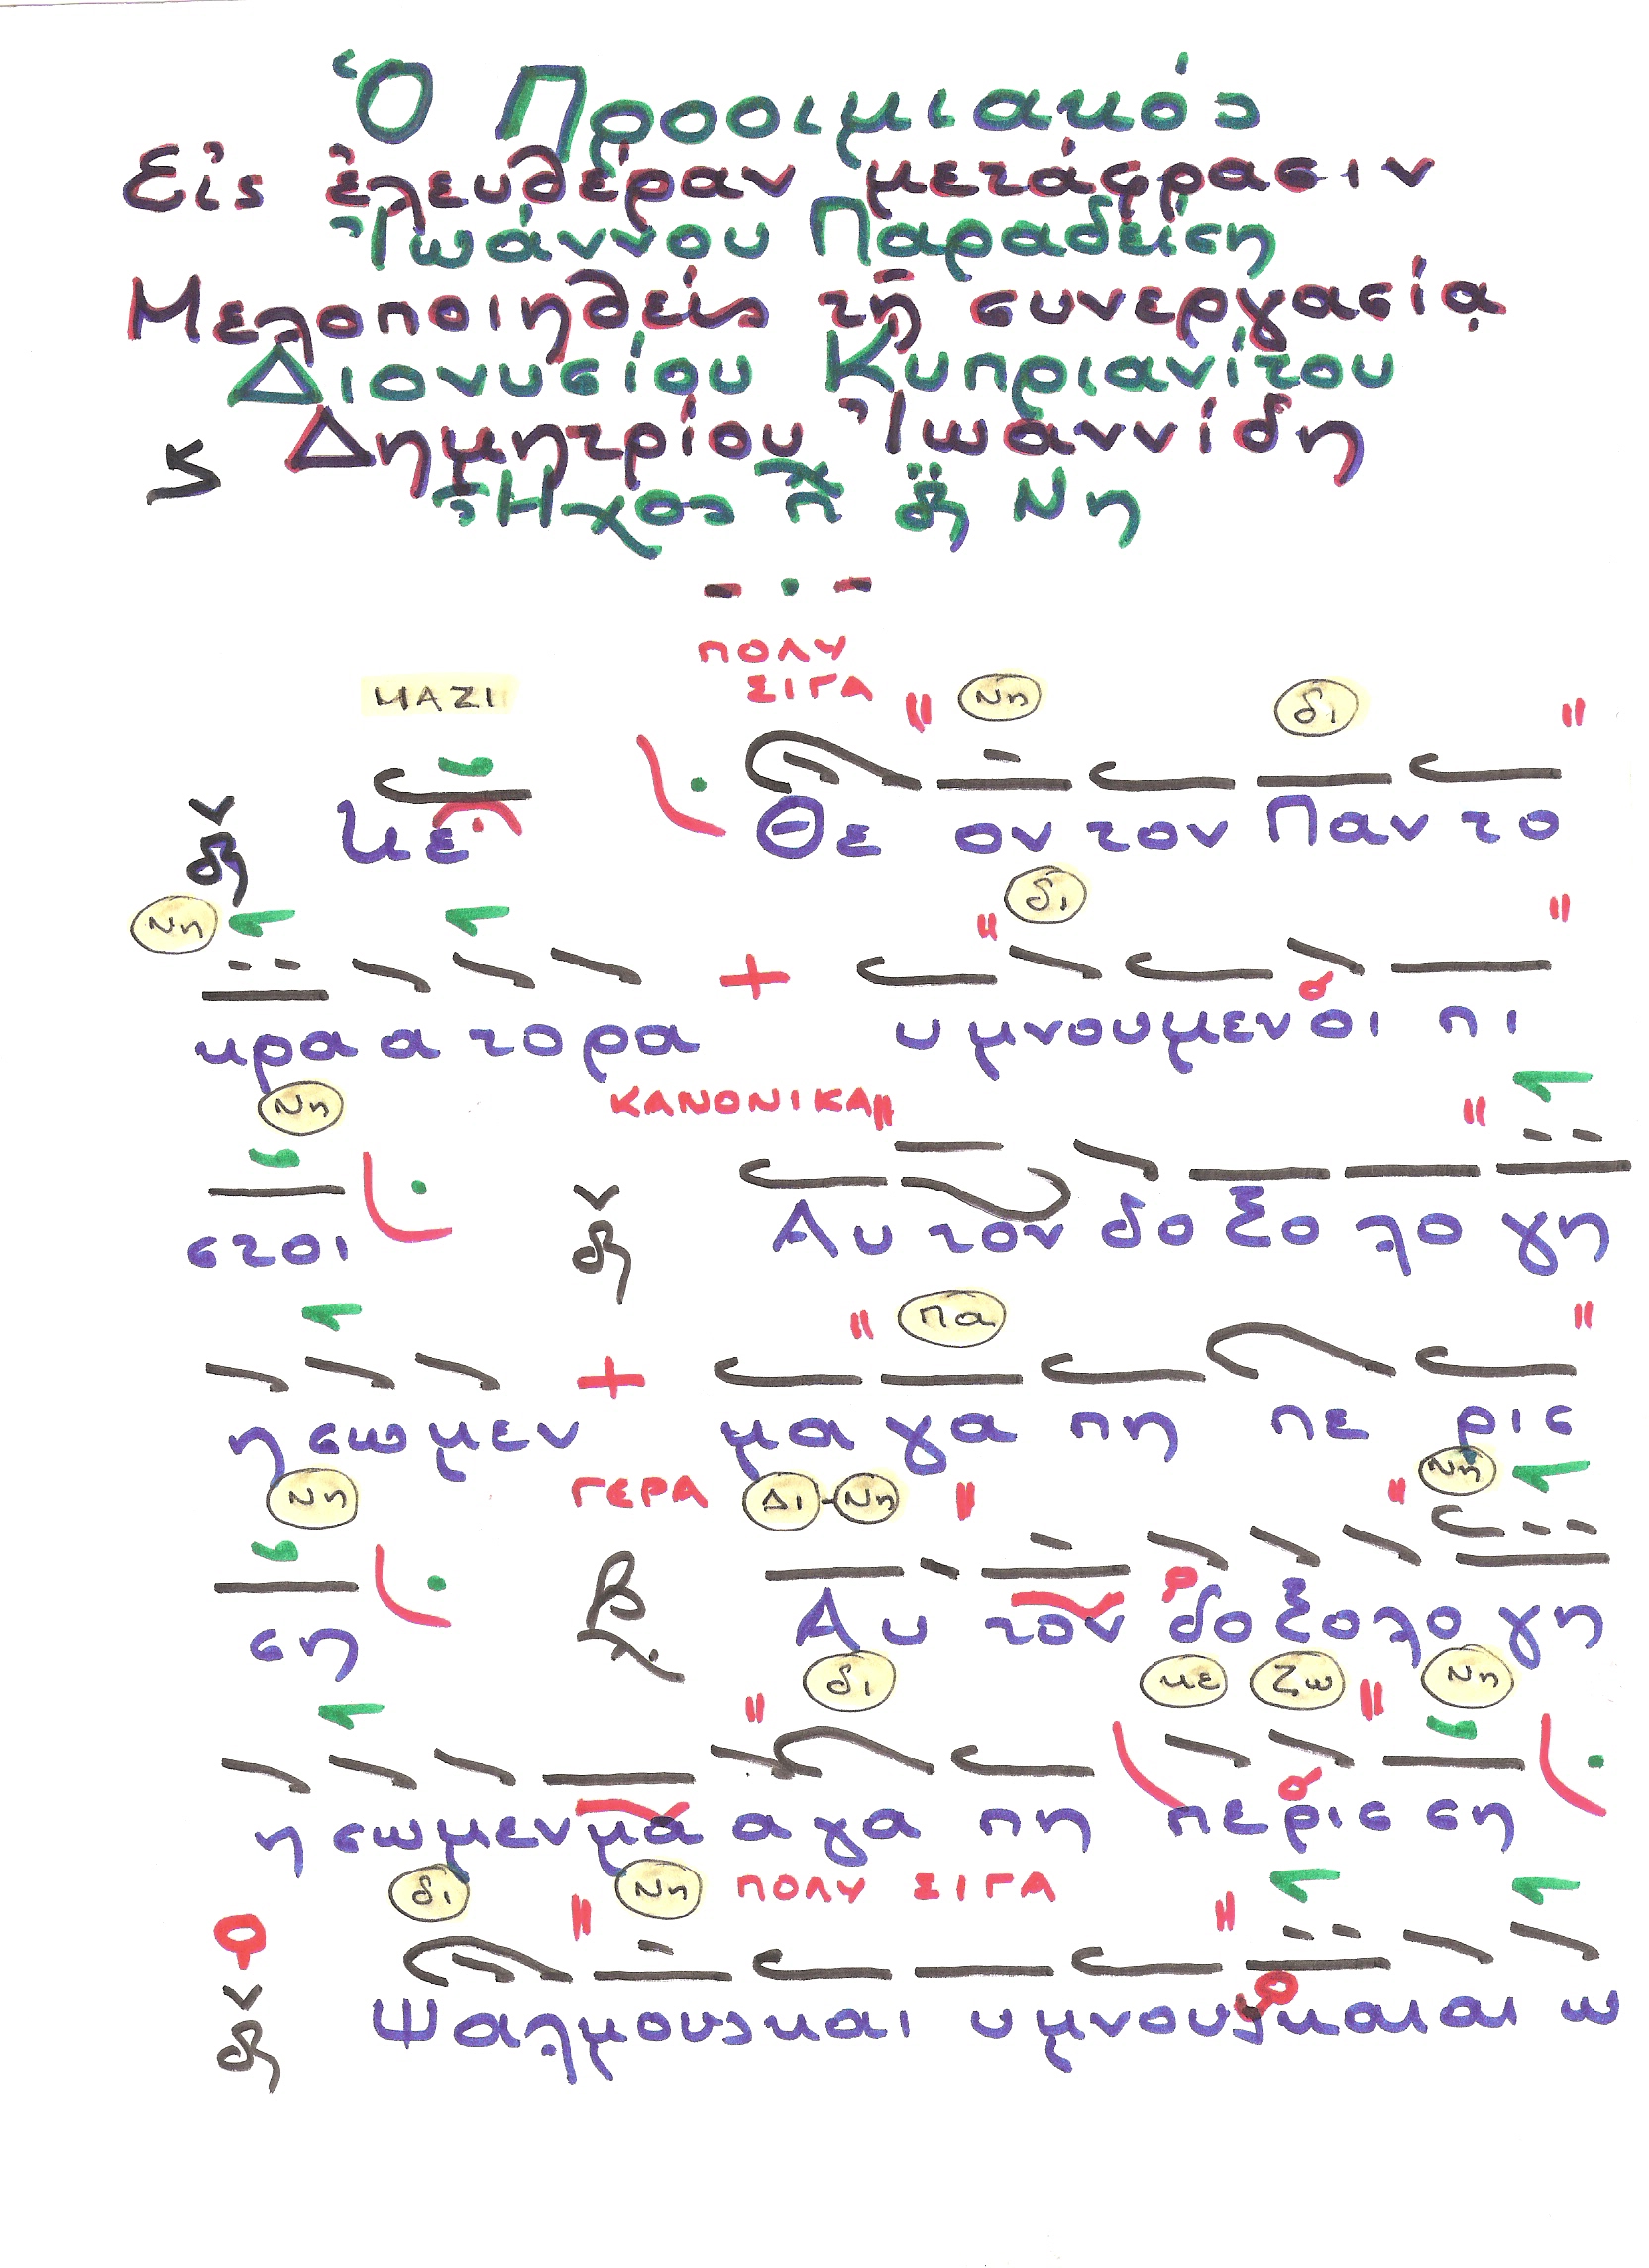 Ὁ Προοιμιακός
Εἰς ἐλευθέραν μετάφρασιν
Ἰωάννου Παραδείση
Μελοποιηθείς τῇ συνεργασίᾳ
Διονυσίου Κυπριανίτου
ϛ Δημητρίου Ἰωαννίδη
Ἦχος π δ̈ Νη
ΠΟΛΥ
ΜΑΖΙ ΣΙΓΑ Νη δι
Κε Θε ον τον Παν το
Νη δι
κρα α το ρα υ μνουμενοι πι
Νη ΚΑΝΟΝΙΚΑ
στοι Αυ τον δο ξο λο γη
Πα
η σω μεν μα γα πη πε ρισ
Νη ΓΕΡΑ Δι-Νη Νη
ση Αυ τον δο ξο λο γη
δι κε Ζω Νη
η σω μεν μα α γα πη πε ρισ ση
δι Νη ΠΟΛΥ ΣΙΓΑ
Ψαλμους και υ μνους και αι ω